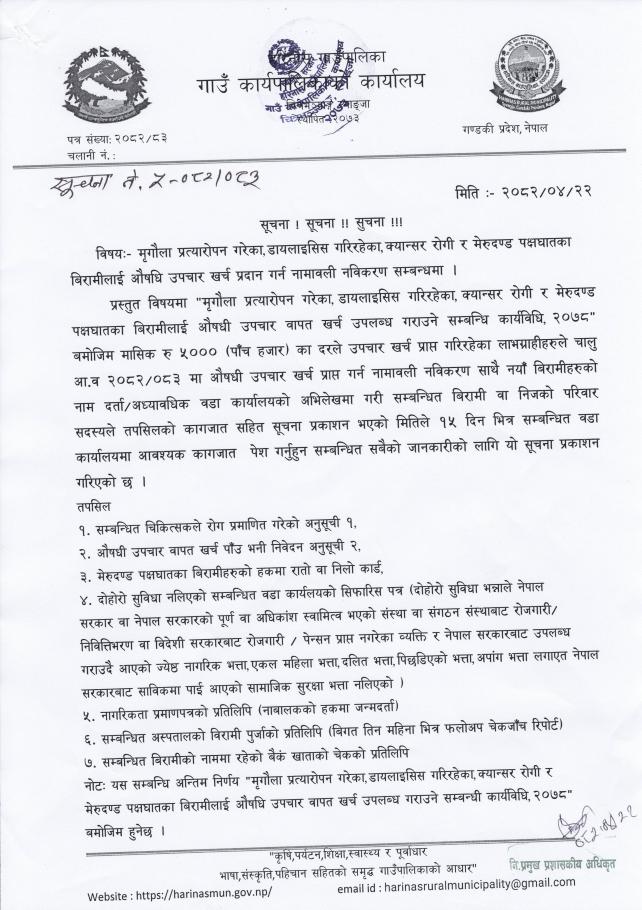 गाउँपालिका
गाउँ कार्यपालिकाको कार्यालय
स्थापित २०७३
HARINAS RURAL MUNICIPALITY
गण्डकी प्रदेश, नेपाल
पत्र संख्या: २०८२/८३
चलानी नं. :
सूचना नं. २-०८२/०८३
मिति :- २०८२/०४/२२
सूचना ! सूचना !! सुचना !!!
विषय:- मृगौला प्रत्यारोपन गरेका,डायलाइसिस गरिरहेका,क्यान्सर रोगी र मेरुदण्ड पक्षघातका
बिरामीलाई औषधि उपचार खर्च प्रदान गर्न नामावली नविकरण सम्बन्धमा ।
प्रस्तुत विषयमा "मृगौला प्रत्यारोपन गरेका, डायलाइसिस गरिरहेका, क्यान्सर रोगी र मेरुदण्ड
पक्षघातका बिरामीलाई औषधी उपचार वापत खर्च उपलब्ध गराउने सम्बन्धि कार्यविधि, २०७८"
बमोजिम मासिक रु ५००० (पाँच हजार) का दरले उपचार खर्च प्राप्त गरिरहेका लाभग्राहीहरुले चालु
आ.व २०८२/०८३ मा औषधी उपचार खर्च प्राप्त गर्न नामावली नविकरण साथै नयाँ बिरामीहरुको
नाम दर्ता/अध्यावधिक वडा कार्यालयको अभिलेखमा गरी सम्बन्धित बिरामी वा निजको परिवार
सदस्यले तपसिलको कागजात सहित सूचना प्रकाशन भएको मितिले १५ दिन भित्र सम्बन्धित वडा
कार्यालयमा आवश्यक कागजात पेश गर्नुहुन सम्बन्धित सबैको जानकारीको लागि यो सूचना प्रकाशन
गरिएको छ ।
तपसिल
१. सम्बन्धित चिकित्सकले रोग प्रमाणित गरेको अनुसूची १,
२. औषधी उपचार वापत खर्च पाँउ भनी निवेदन अनुसूची २,
३. मेरुदण्ड पक्षघातका बिरामीहरुको हकमा रातो वा निलो कार्ड,
४. दोहोरो सुविधा नलिएको सम्बन्धित वडा कार्यालयको सिफारिस पत्र (दोहोरो सुविधा भन्नाले नेपाल
सरकार वा नेपाल सरकारको पूर्ण वा अधिकांश स्वामित्व भएको संस्था वा संगठन संस्थाबाट रोजगारी/
निवित्तिभरण वा विदेशी सरकारबाट रोजगारी / पेन्सन प्राप्त नगरेका व्यक्ति र नेपाल सरकारबाट उपलब्ध
गराउदै आएको ज्येष्ठ नागरिक भत्ता,एकल महिला भत्ता,दलित भत्ता,पिछडिएको भत्ता,अपांग भत्ता लगाएत नेपाल
सरकारबाट साविकमा पाई आएको सामाजिक सुरक्षा भत्ता नलिएको )
५. नागरिकता प्रमाणपत्रको प्रतिलिपि (नाबालकको हकमा जन्मदर्ता)
६. सम्बन्धित अस्पतालको बिरामी पुर्जाको प्रतिलिपि (बिगत तिन महिना भित्र फलोअप चेकजाँच रिपोर्ट)
७. सम्बन्धित बिरामीको नाममा रहेको बैकं खाताको चेकको प्रतिलिपि
नोटः यस सम्बन्धि अन्तिम निर्णय "मृगौला प्रत्यारोपन गरेका,डायलाइसिस गरिरहेका,क्यान्सर रोगी र
मेरुदण्ड पक्षघातका बिरामीलाई औषधि उपचार बापत खर्च उपलब्ध गराउने सम्बन्धी कार्यविधि, २०७८"
बमोजिम हुनेछ ।
०८२.०४.२२
नि.प्रमुख प्रशासकीय अधिकृत
"कृषि,पर्यटन,शिक्षा,स्वास्थ्य र पूर्वाधार
भाषा,संस्कृति,पहिचान सहितको समृद्ध गाउँपालिकाको आधार"
Website : https://harinasmun.gov.np/ email id : harinasruralmunicipality@gmail.com